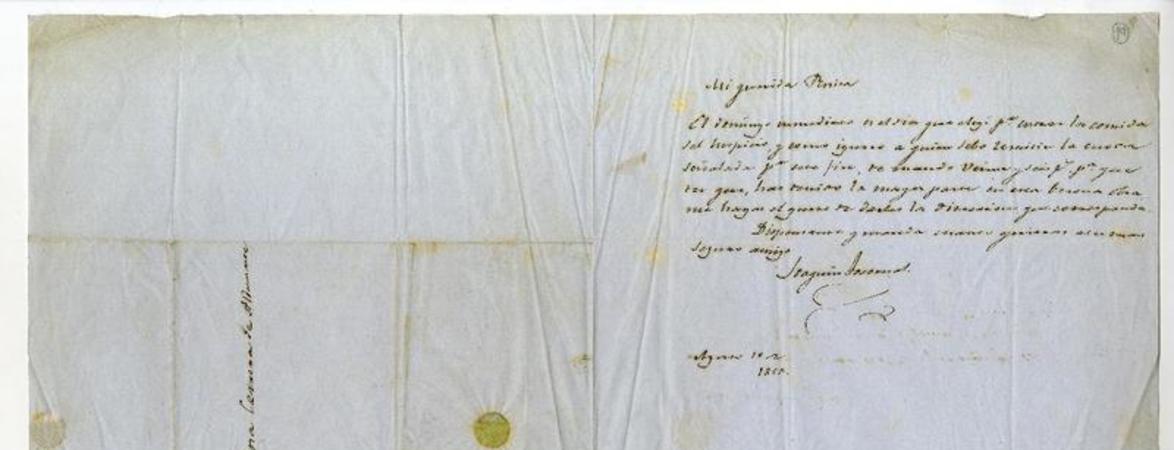 Mi querida Perica
El domingo inmediato es el dia que elegi pª costear la comida
del hospicio, y como ignoro a quien debo remitir la cuota
señalada pª este fin, te mando veinte y seis pˢ pª que
tu que, has tenido la mayor parte en esa buena obra
me hagas el gusto de darles la direccion que corresponda.
Dispensame y manda cuanto quieras a tu
seguro amigo
Joaquin
Agosto 1º